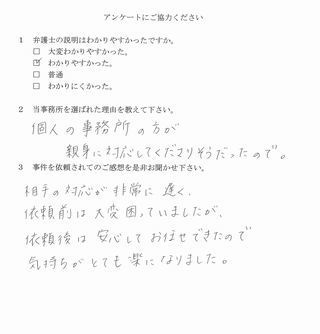 アンケートにご協力ください
1 弁護士の説明はわかりやすかったですか。
□ 大変わかりやすかった。
☑ わかりやすかった。
□ 普通
□ わかりにくかった。
2 当事務所を選ばれた理由を教えて下さい。
個人の事務所の方が
親身に対応してくださりそうだったので。
3 事件を依頼されてのご感想を是非お聞かせ下さい。
相手の対応が非常に遅く、
依頼前は大変困っていましたが、
依頼後は安心してお任せできたので
気持ちがとても楽になりました。